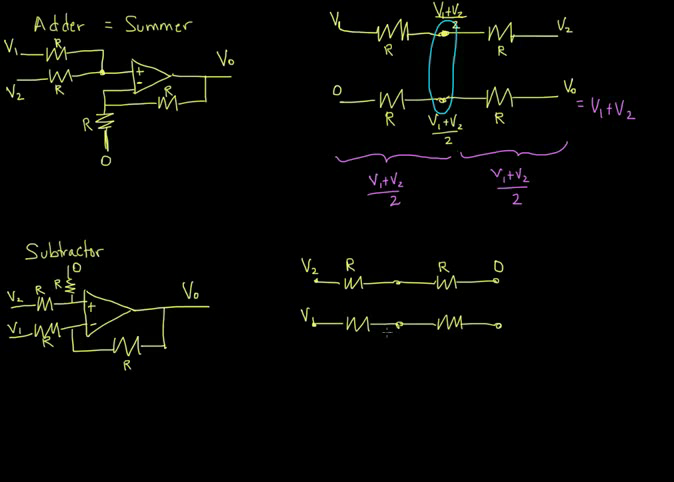 Adder = Summer
V₁
R
V₂
R
+
-
R
R
0
V₀
V₁+V₂
2
V₁
R
R
V₂
0
R
R
V₀
= V₁+V₂
V₁+V₂
2
V₁+V₂
2
V₁+V₂
2
Subtractor
0
R
V₂
R
+
V₁
R
-
R
V₀
V₂
R
R
0
V₁